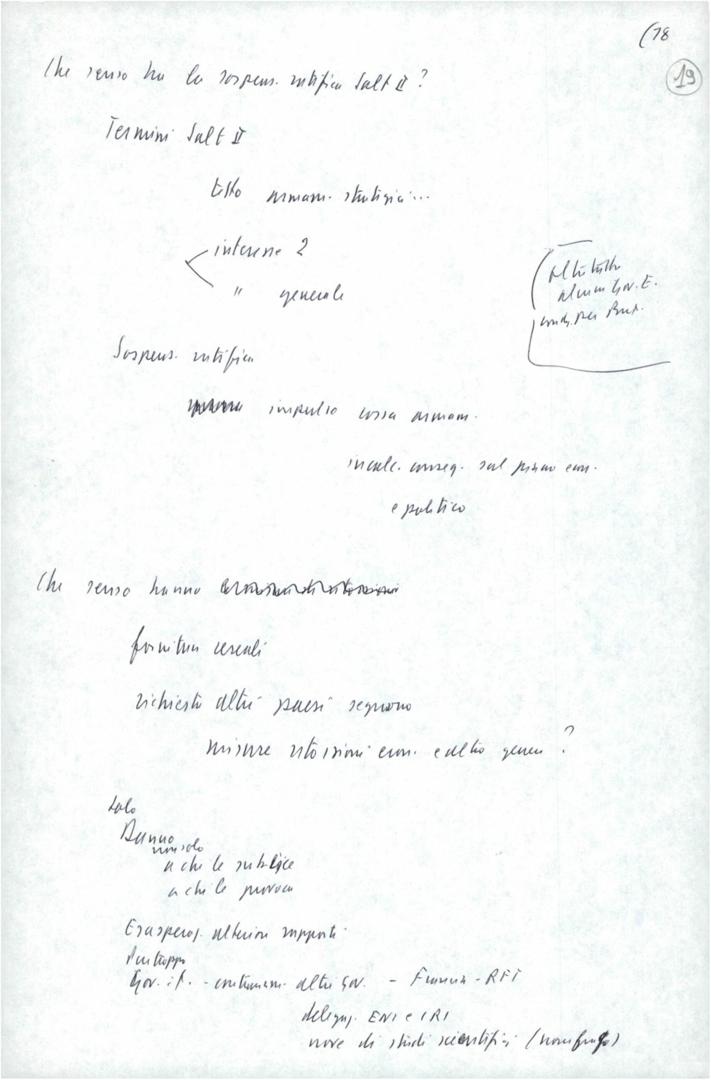 (78
19
Che senso ha la sospens. ratifica Salt II?
Termini Salt II
tetto armam. strategici...
interesse 2
" generale
Sospens. ratifica
impulso corsa armam.
incalc. conseg. sul piano econ.
e politico
Che senso hanno
fornitura cereali
richiesta altri paesi seguono
misure ritorsioni econ. e altro genere?
solo
Danno
non solo
a chi le subisce
a chi le provoca
Esasperaz. ulteriore rapporti
Purtroppo
Gov. it. - contrariam. altri Gov. - Francia - RFT
delegaz. ENI e IRI
nave di studi scientifici